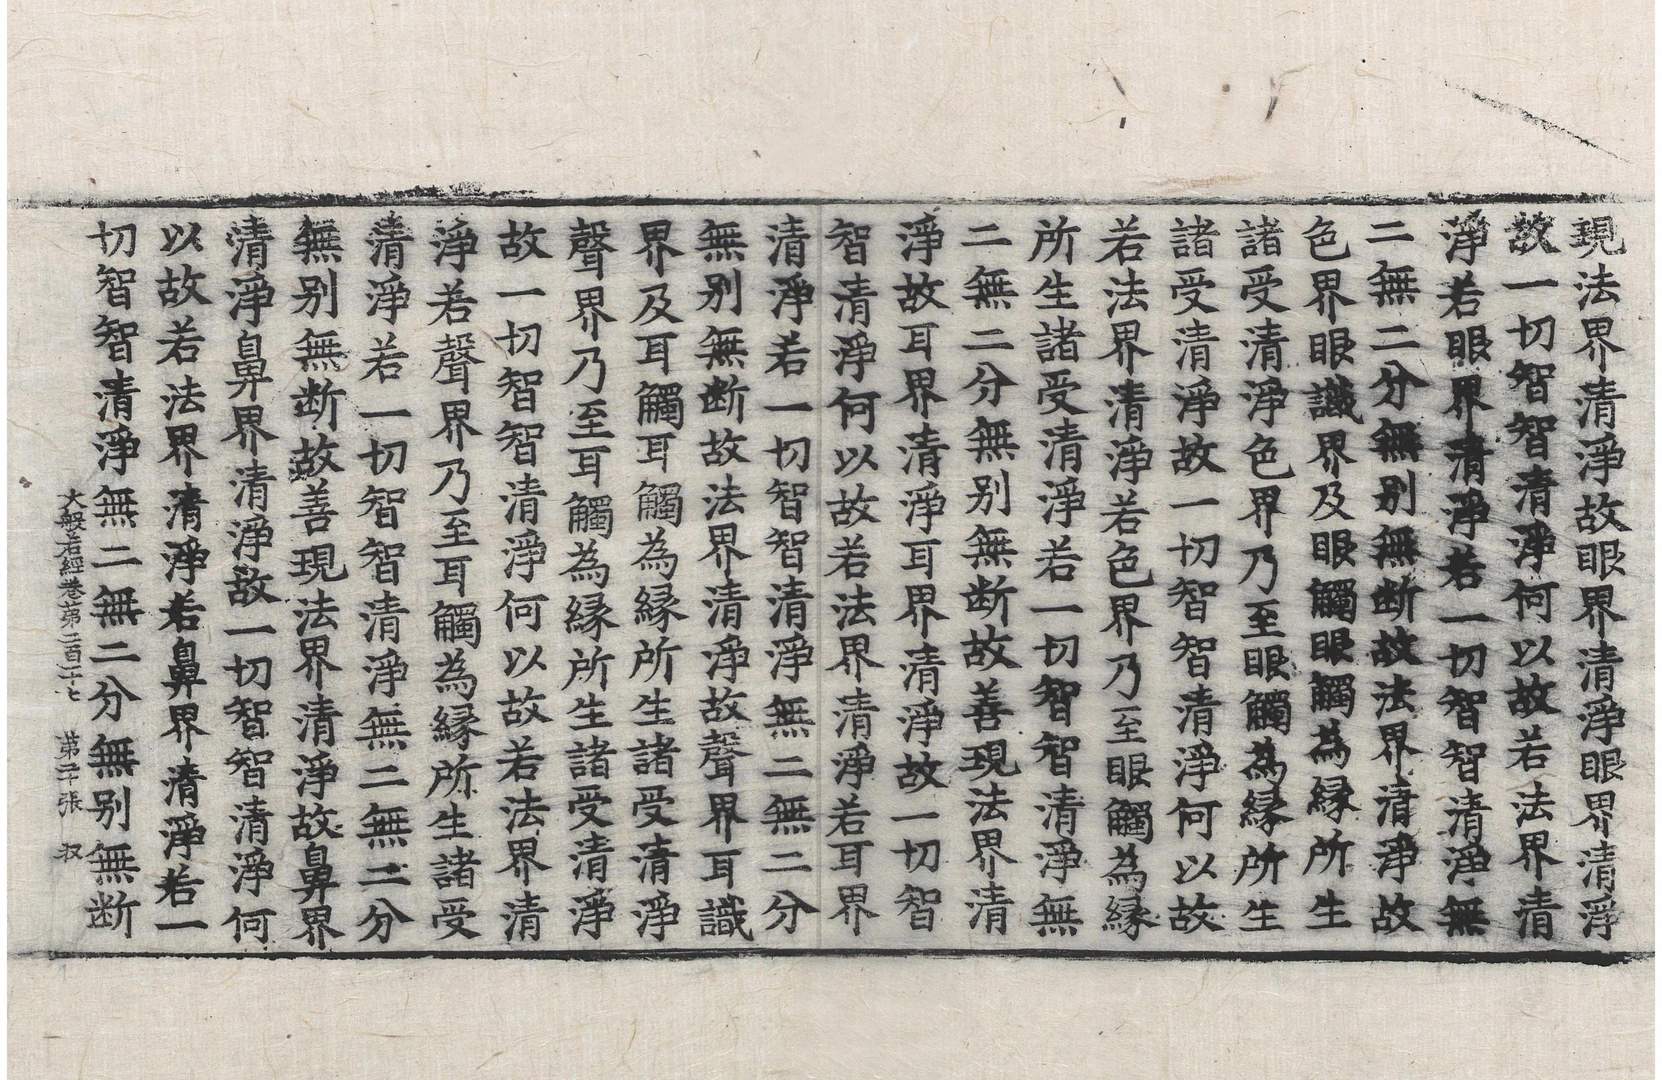 現法界清淨故眼界清淨眼界清淨
故一切智智清淨何以故若法界清
淨若眼界清淨若一切智智清淨無
二無二分無别無断故法界清淨故
色界眼識界及眼觸眼觸為縁所生
諸受清淨色界乃至眼觸為縁所生
諸受清淨故一切智智清淨何以故
若法界清淨若色界乃至眼觸為縁
所生諸受清淨若一切智智清淨無
二無二分無别無断故善現法界清
淨故耳界清淨耳界清淨故一切智
智清淨何以故若法界清淨若耳界
清淨若一切智智清淨無二無二分
無别無断故法界清淨故聲界耳識
界及耳觸耳觸為縁所生諸受清淨
聲界乃至耳觸為縁所生諸受清淨
故一切智智清淨何以故若法界清
淨若聲界乃至耳觸為縁所生諸受
清淨若一切智智清淨無二無二分
無别無断故善現法界清淨故鼻界
清淨鼻界清淨故一切智智清淨何
以故若法界清淨若鼻界清淨若一
切智智清淨無二無二分無别無断
大般若經卷第二百二十七 第二十張